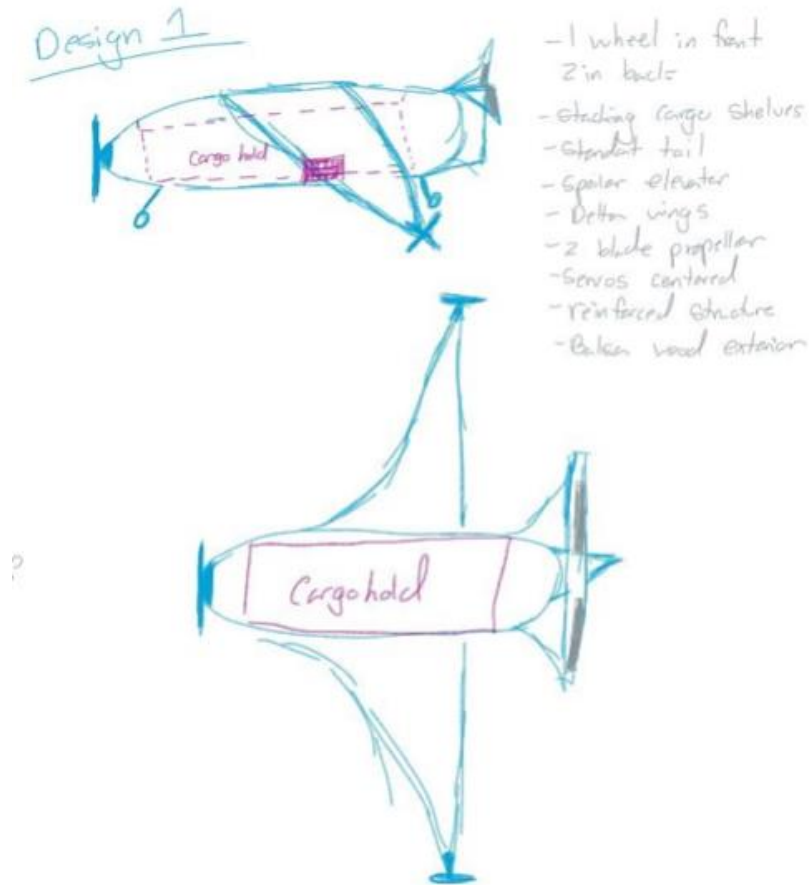 Design 1
- 1 wheel in front
2 in back
- Stacking cargo shelves
- Standart tail
- Spoiler elevator
- Delta wings
- 2 blade propeller
- Servos centered
- reinforced structure
- Balsa wood exterior
Cargo hold
Cargo hold